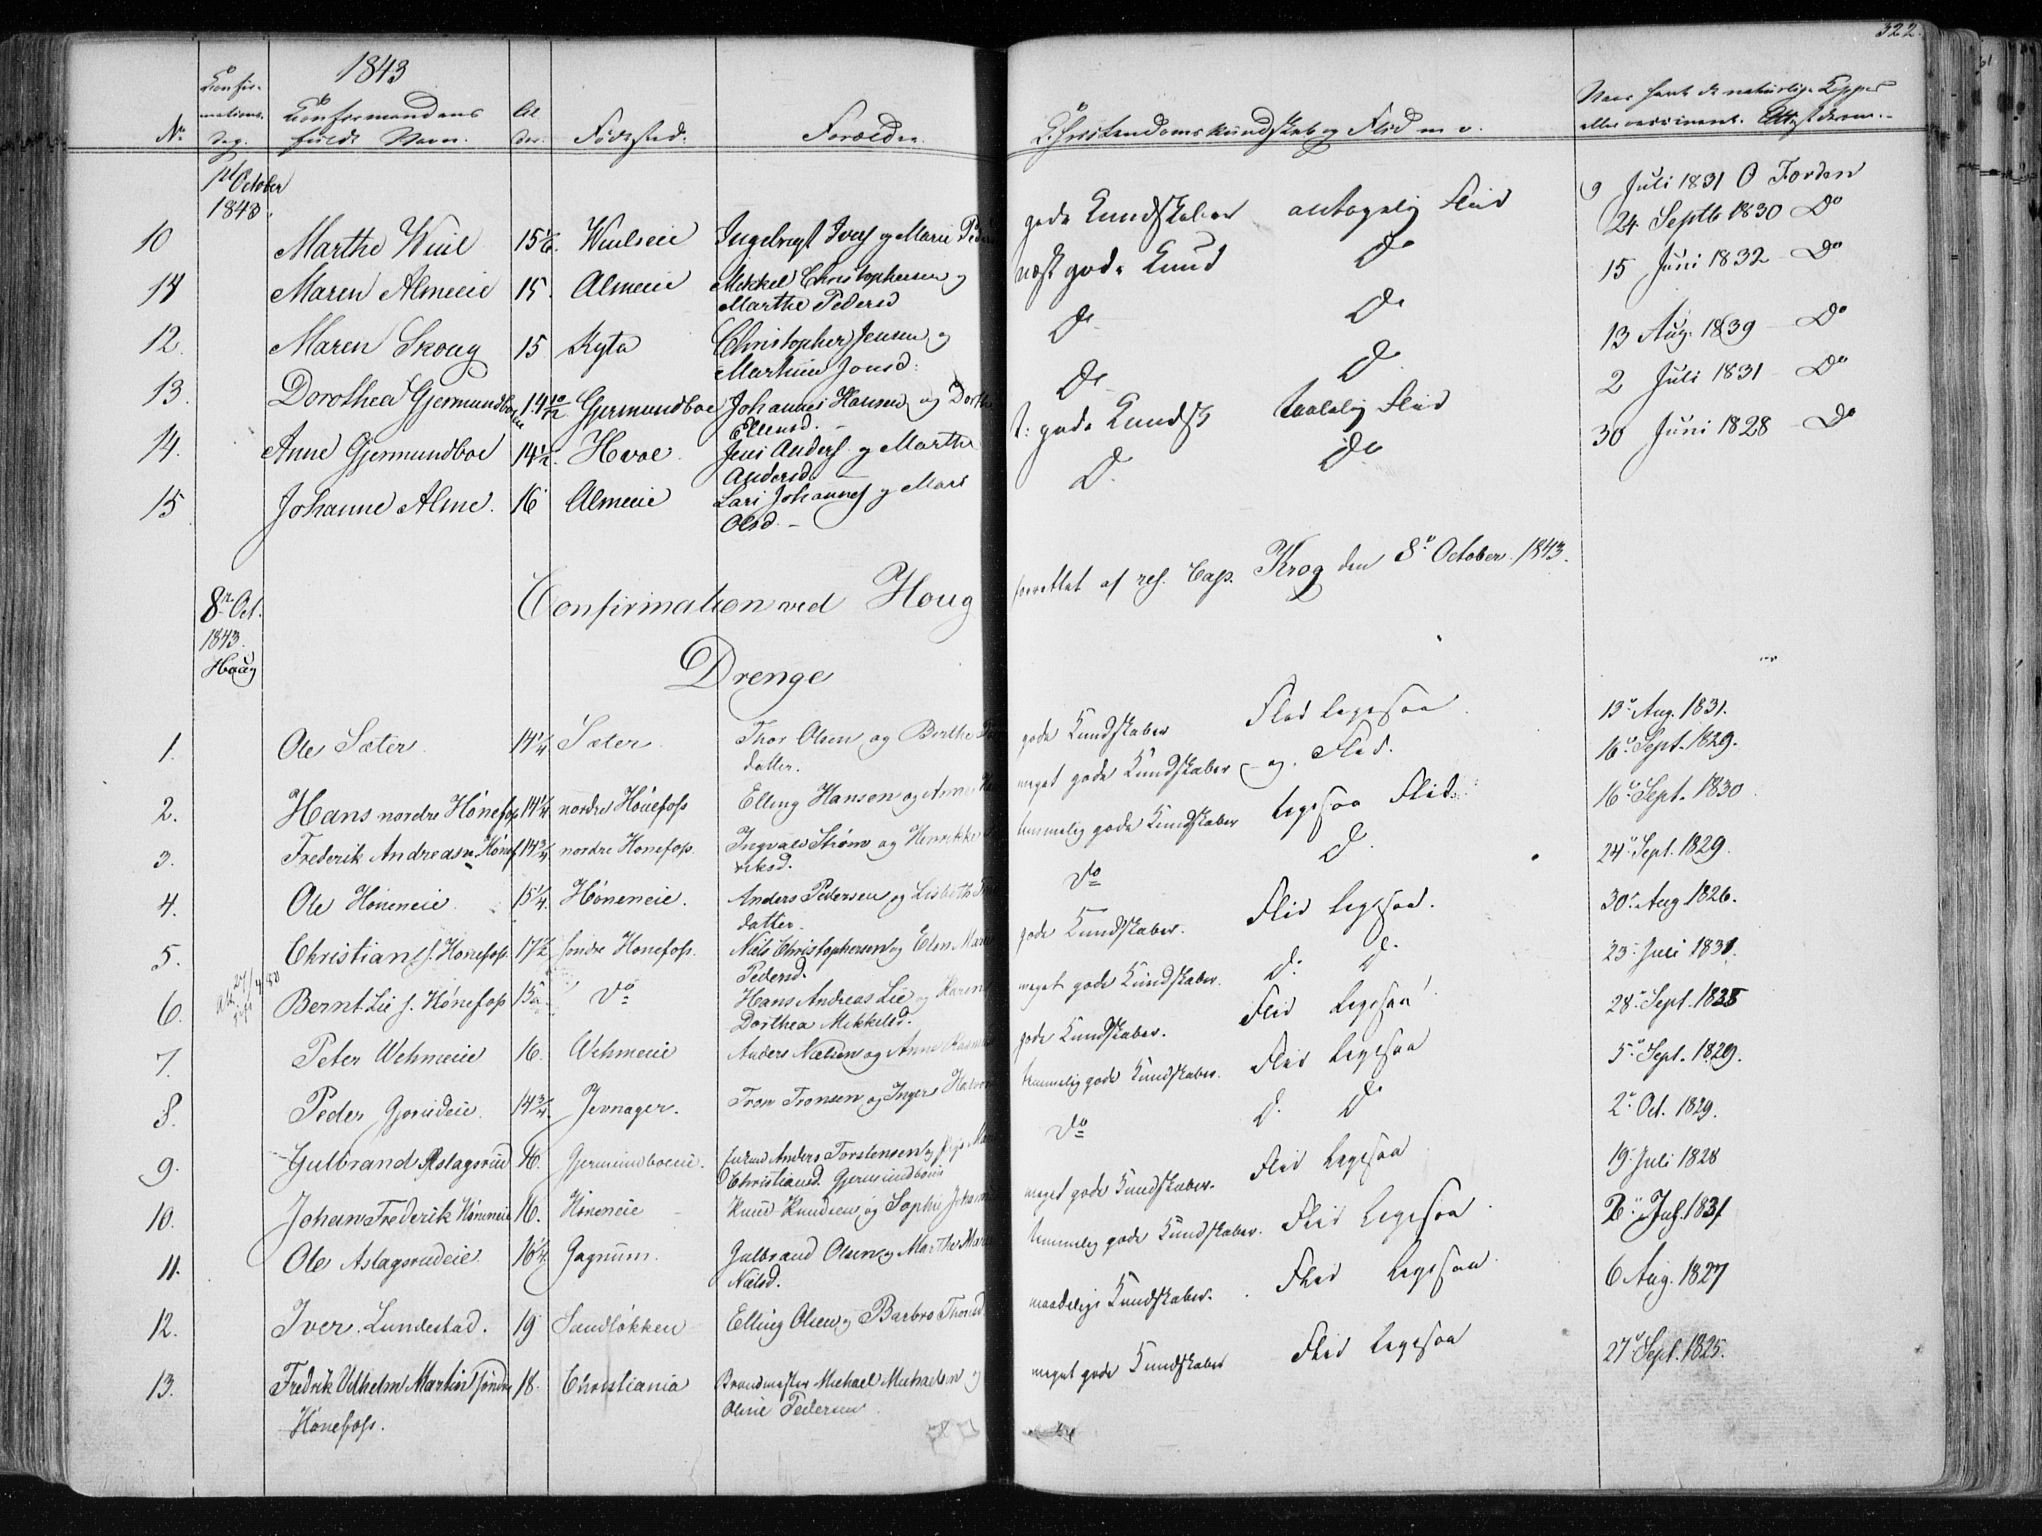 322.
1843
No
Confir-
mations-
Dag.
Confirmandens
fulde Navn.
Al
der.
Fødested.
Forældre.
Christendomskundskab og Flid m. v.
Naar havte de naturlige Kopper
eller vaccineret. Attest derom.
1st October
1843.
9 Juli 1831 O Forden
10 Marthe Wiul 15 1/2. Wiulseie Ingebregt Ivers og Marie Peders gode Kundskaber antagelig Flid 24 Septb 1830 Do
14 Maren Almeeie 15. Almeeie Mikkel Christophersen og
Marthe Pedersd næst gode Kund Do 15 Juni 1832 Do
12. Maren Skoug 15 Ryta Christopher Jensen og
Marthine Jonsd: Do Do 13 Aug. 1839 Do
13. Dorothea Gjermundboe 14 10/12 Gjermundboe Johannes Hansen og Dorthe
Ellensd. Do D. 2 Juli 1831 Do
14. Anne Gjermundboe 14 1/2. Hvae. Jens Anders og Marthe
Andersd. t: gode Kundsk taalelig Flid 30 Juni 1828 Do
15 Johanne Alme. 16 Almeeie Lars Johannes og Mari
Olsd. D. Do
8de Oct.
1843.
Haug
Confirmation ved Houg forrettet af res. Cap. Krog den 8de October 1843.
Drenge
1. Ole Sæter. 14 1/4 Sæter. Thor Olsen og Berthe
datter. gode Kundskaber Flid ligesaa. 13de Aug. 1831.
2. Hans nordre Hønefos 14 1/4 nordre Hønefoss Elling Hansen og Anne meget gode Kundskaber og Flid. 16de Sept. 1829.
3. Frederik Andreas n. Hønef. 14 3/4 nordre Honefoss. Ingvald Strøm og Henrikke
riksd. temmelig gode Kundskaber ligesaa Flid. 16de Sept. 1830
4. Ole Høneneie. 15 1/4. Høneneie. Anders Pedersen og Lisbeth
datter. Do D. 24de Sept. 1829.
5. Christian s. Hønefoss. 17 1/2 søndre Honefoss. Niels Christophersen og Elen Maria
Pedersd. gode Kundskaber. Flid ligesaa. 30de Aug 1826.
27/4 80
6. Bernt Lie s. Hønefoss 15 Do Hans Andreas Lie og Karen
Dorthea Mikkelsd. meget gode Kundskaber. D. D. 23de Juli 1831.
7. Peter Wehmeie 16. Wehmeie Anders Nielsen og Anne gode Kundskaber. Flid ligesaa 28de Sept. 1828
8. Peder Gjorudeie. 14 3/4. Jevnager. Tron Tronsen og Inger temmelig gode Kundskaber. Flid ligesaa 5de Sept. 1829.
9. Gulbrand Aslagsrud 16. Gjermundboeeie. Anders Torstensen og
Christiansd. Gjermundboeeie Do D. D. 2de Oct. 1829.
10. Johan Frederik Høneneie 16. Høneneie Knud Knudsen og Sophie meget gode Kundskaber. Flid ligesaa 19de Juli 1828
11. Ole Aslagsrudeie. 16 1/4. Gagnum. Gulbrand Olsen og Marthe
Nielsd. temmelig gode Kundskaber. Flid ligesaa. 2de Jul. 1831
12. Iver Lundestad. 19 Sandløkken Elling Olsen og Barbro Thorsd maadelige Kundskaber. Flid ligesaa. 6 Aug. 1827
13. Fredrik Vilhelm Martin søndre
Hønefoss. 18. Christiania Brandmester Michael Michaelsen og
Oline Pedersen. meget gode Kundskaber Flid ligesaa 27de Sept. 1825.